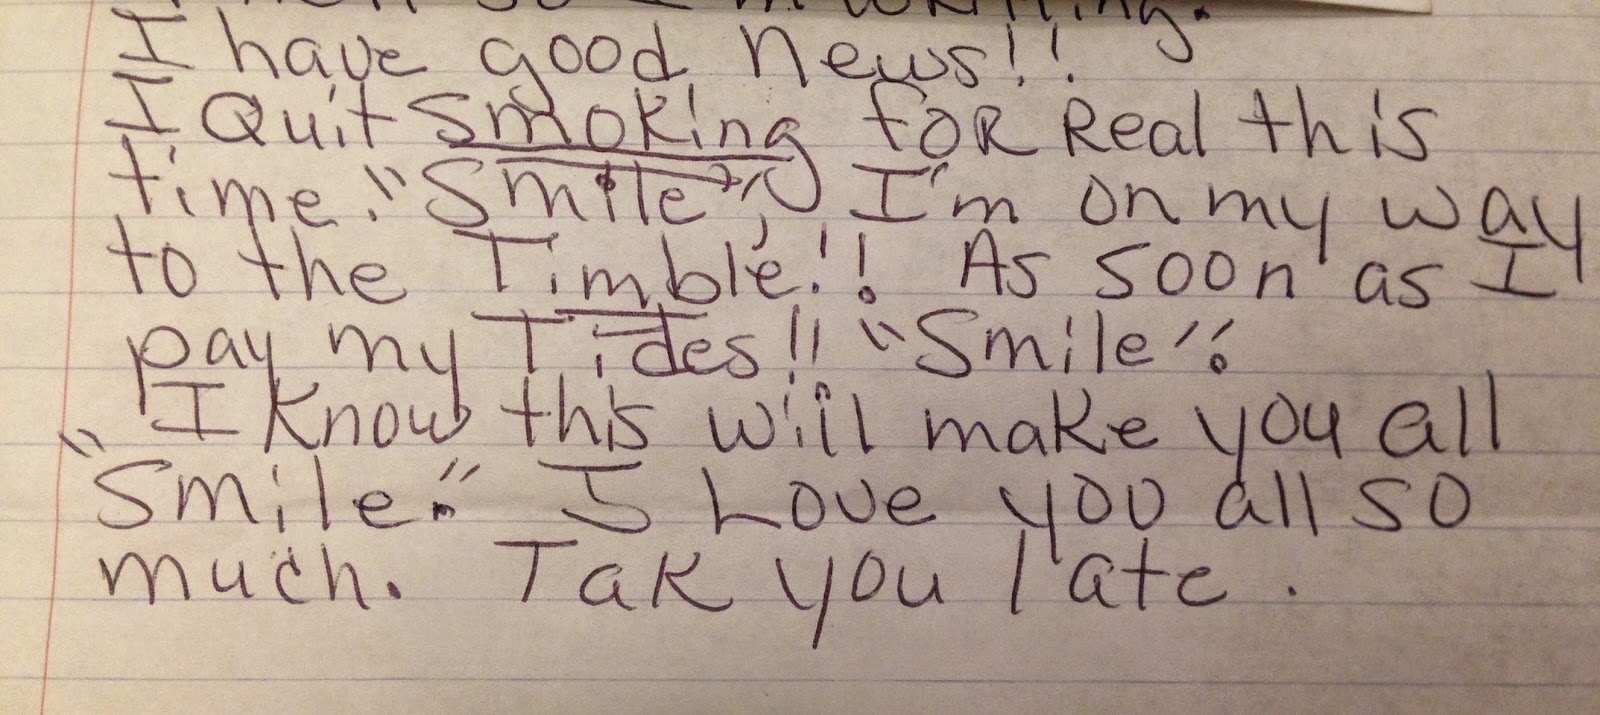 so I'm writing.
I have good news!!
I Quit Smoking for Real this
time. "Smile", I'm on my way
to the Timble!! As soon as I
pay my Tides!! "Smile".
I know this will make you all
"Smile." I Love you all so
much. Tak you late.